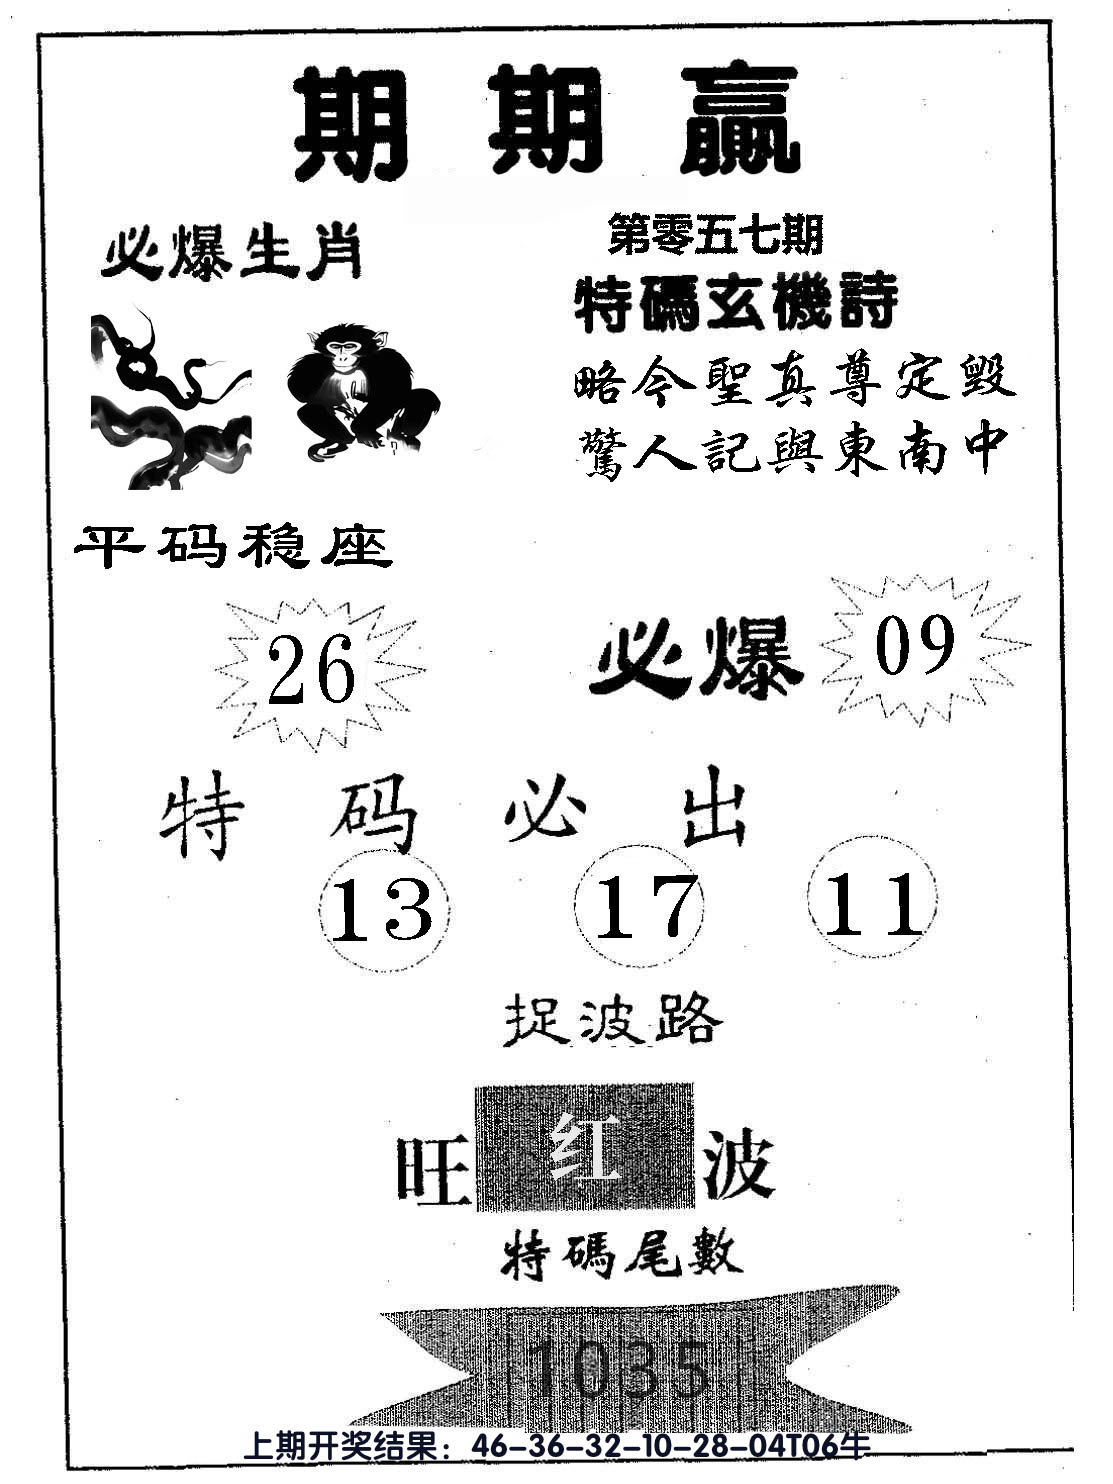 期期赢
必爆生肖
第零五七期
特碼玄機詩
略今聖真尊定毀
驚人記與東南中
平码稳座
26
必爆 09
特码必出
13 17 11
捉波路
旺 红 波
特碼尾數
1035
上期开奖结果：46-36-32-10-28-04T06牛